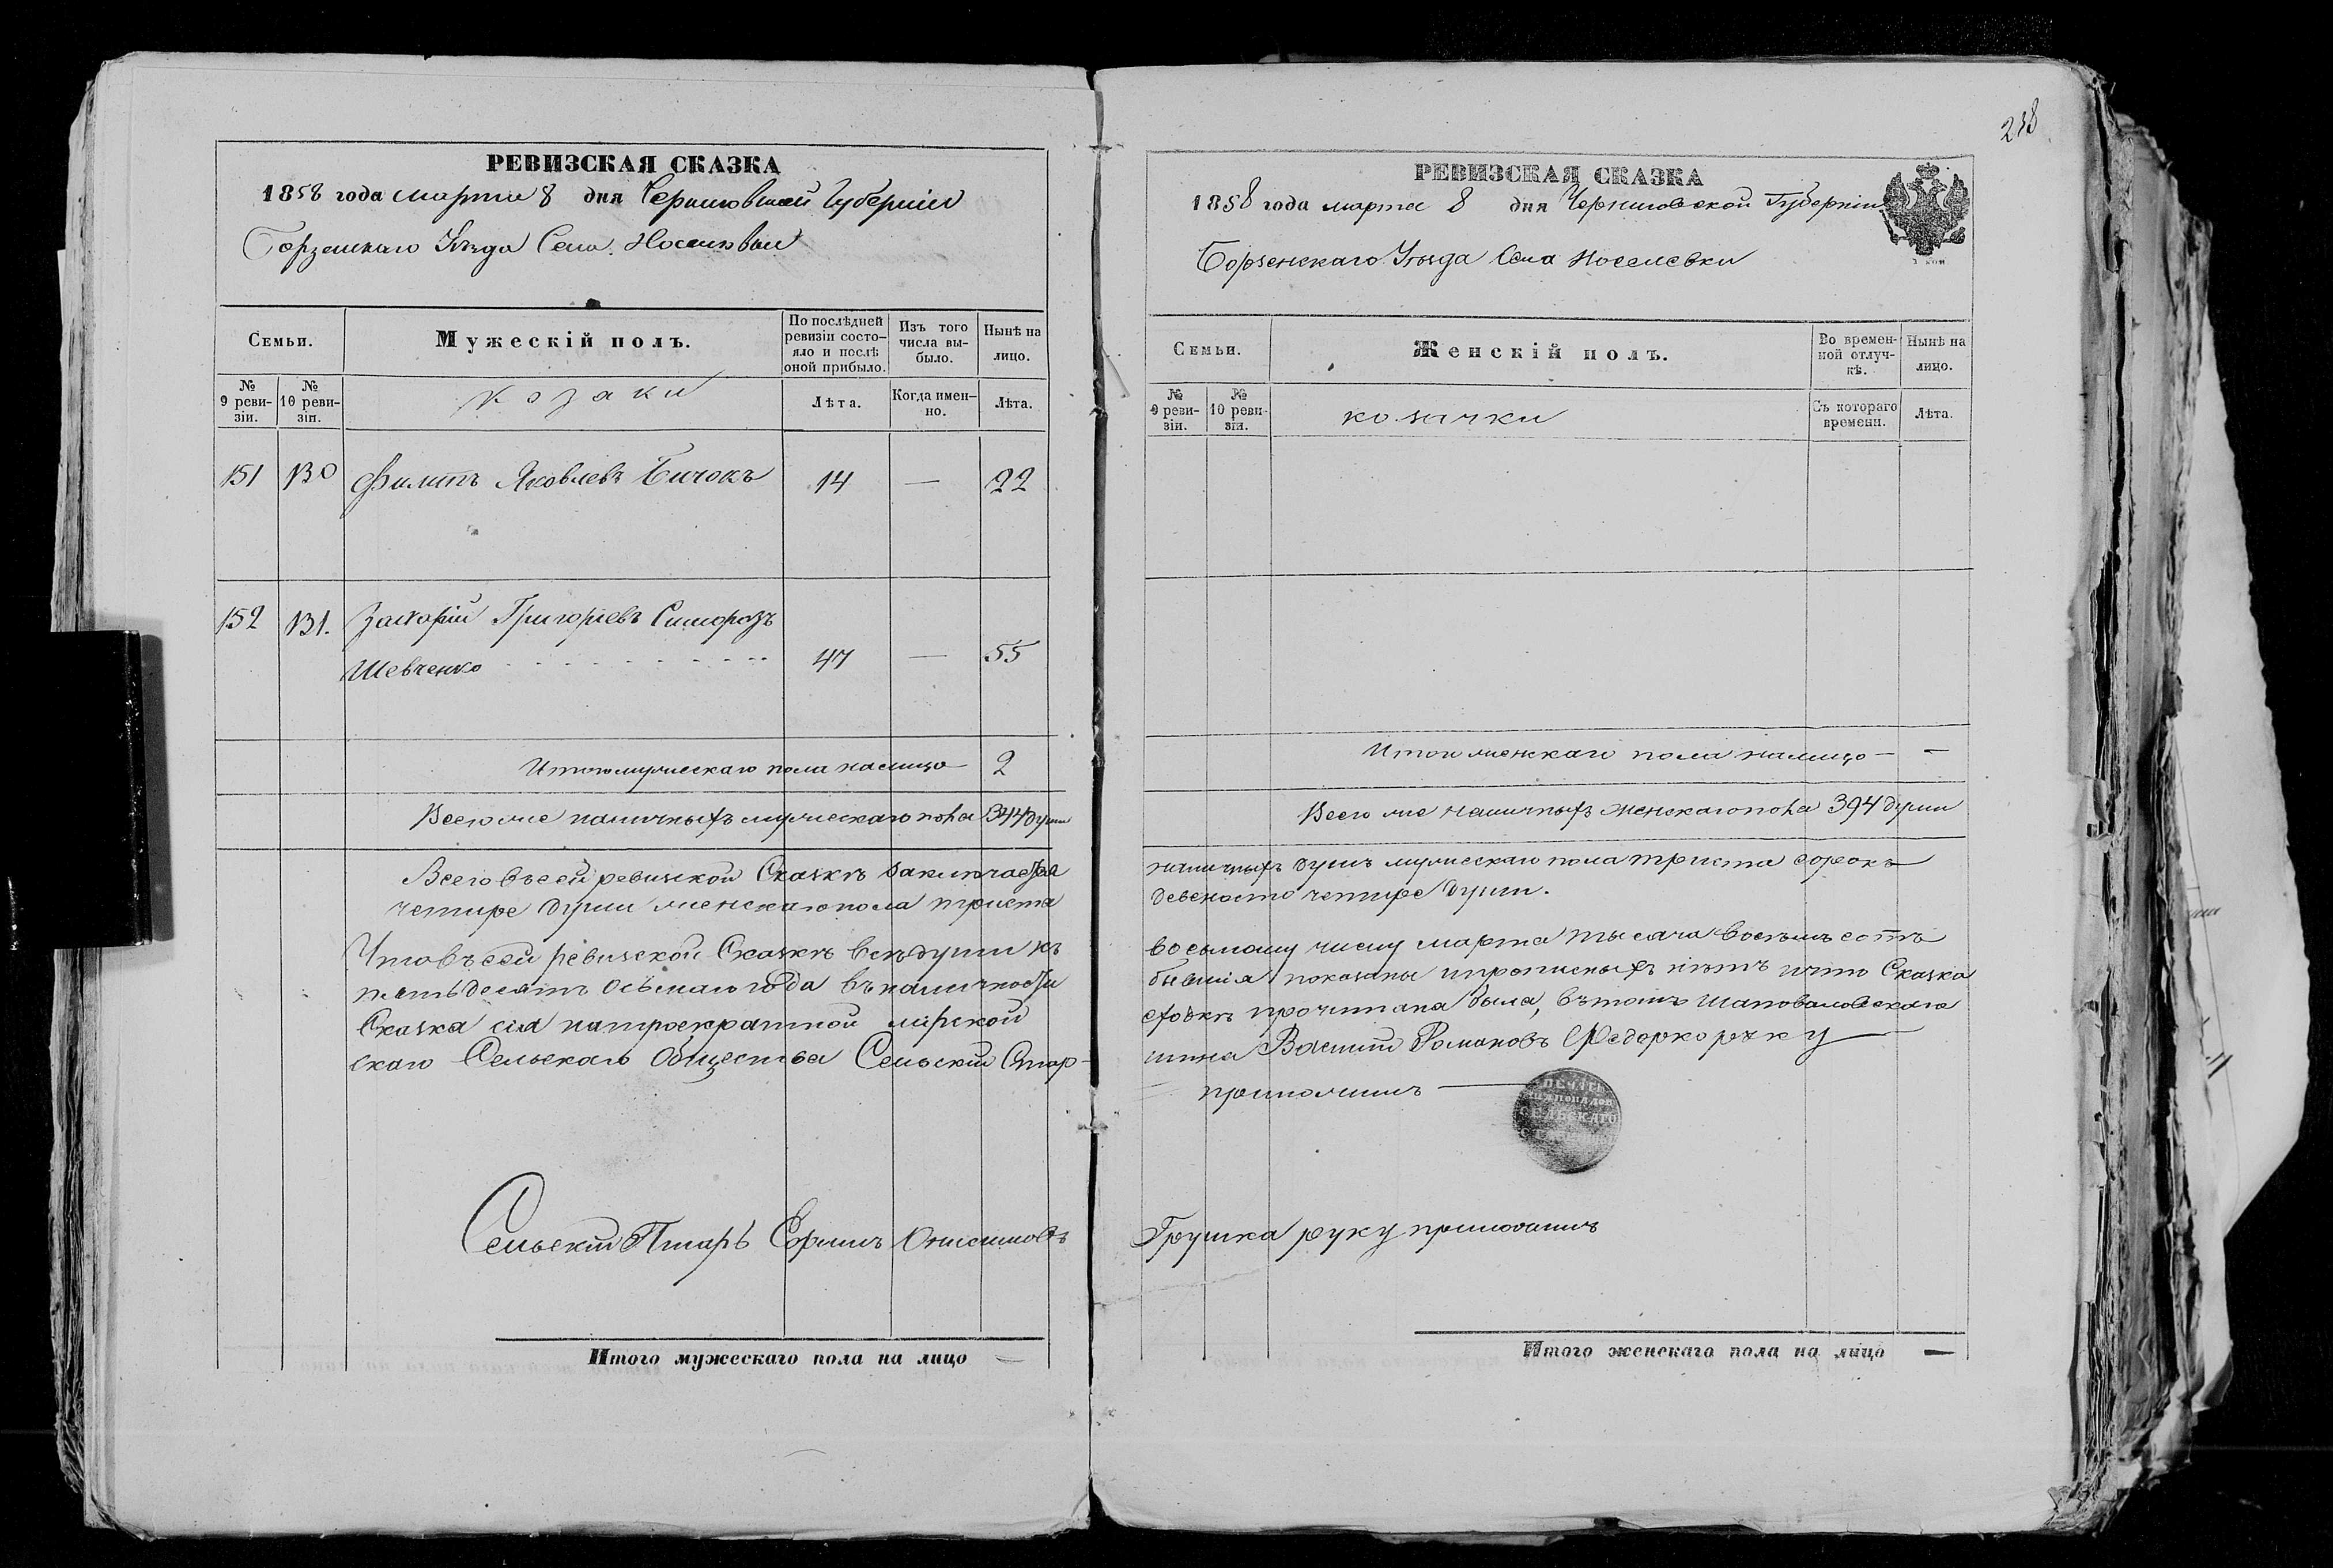 238
РЕВИЗСКАЯ СКАЗКА
1858 года марта 8 дня Черниговской Губерніи
Борзенскаго Уѣзда Села Носелевки
Семьи.
Мужескій полъ.
По послѣдней ревизіи состояло и послѣ оной прибыло.
Изъ того числа выбыло.
Нынѣ на лицо.
№ 9 ревизіи.
№ 10 ревизіи.
козаки
Лѣта.
Когда именно.
Лѣта.
151 130 Филипъ Яковлевъ Бичокъ 14 — 22
152 131. Захарій Григоріевъ
Шевченко 47 — 55
Итого мужескаго пола налицо 2
Всего же наличныхъ мужескаго пола 344 души
Всего въ сей ревизской Сказкѣ заключается
четыре души женскаго пола триста
Что въ сей ревизской Сказкѣ всѣ души къ
пятьдесятъ осьмаго года въ наличности
Сказка сія на троекратной мірской
скаго Сельскаго Общества Сельскій Стар-
Сельскій Писарь Ефимъ Онисимовъ
Итого мужескаго пола на лицо —
РЕВИЗСКАЯ СКАЗКА
1858 года марта 8 дня Черниговской Губерніи
Борзенскаго Уѣзда Села Носелевки
Семьи.
Женскій полъ.
Во временной отлучкѣ.
Нынѣ на лицо.
№ 9 ревизіи.
№ 10 ревизіи.
козачки
Съ котораго времени.
Лѣта.
Итого женскаго пола налицо — —
Всего же наличныхъ женскаго пола 394 души
наличныхъ душъ мужескаго пола триста сорокъ
девяносто четыре души.
восьмому числу марта тысяча восемь сотъ
бывшія показаны и прописныхъ нѣтъ и что Сказка
сходкѣ прочитана была, въ томъ Шаповаловскаго
шина Василій Романовъ Федорко руку
приложилъ
ПЕЧАТЬ
СЕЛЬСКАГО
Грушка руку приложилъ
Итого женскаго пола на лицо —